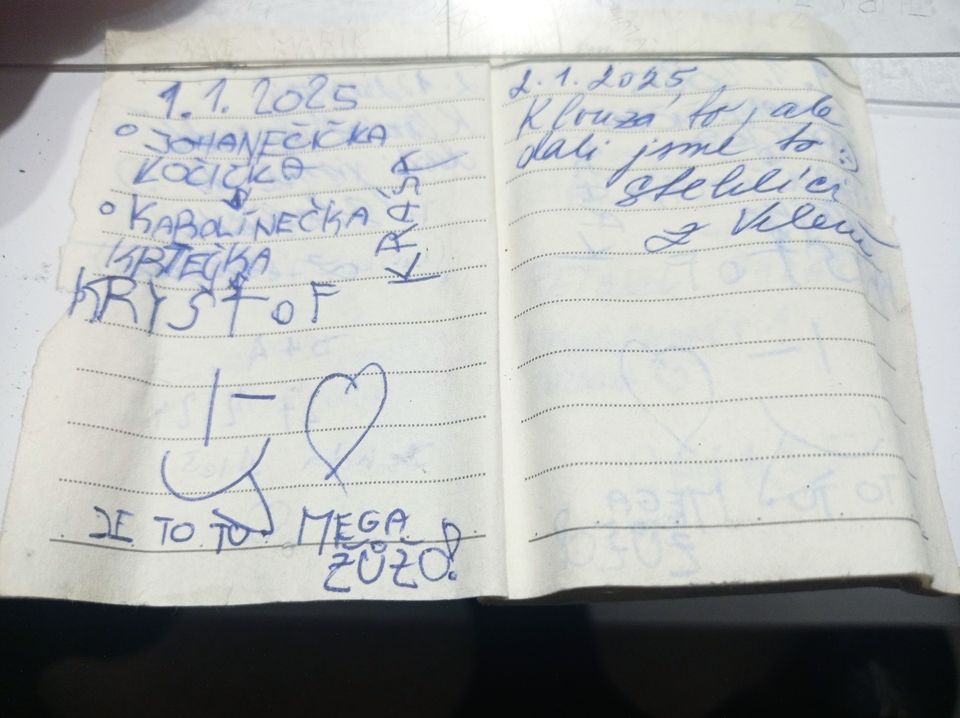 1.1.2025
JOHANEČIČKA
KOČIČKA
KAROLÍNEČKA
KRTEČKA
KRÁSA
KRYŠTOF
JE TO TU MEGA
ŽŮŽO!
2.1.2025
Klouzá to, ale
dali jsme to :)
stehlíci
z